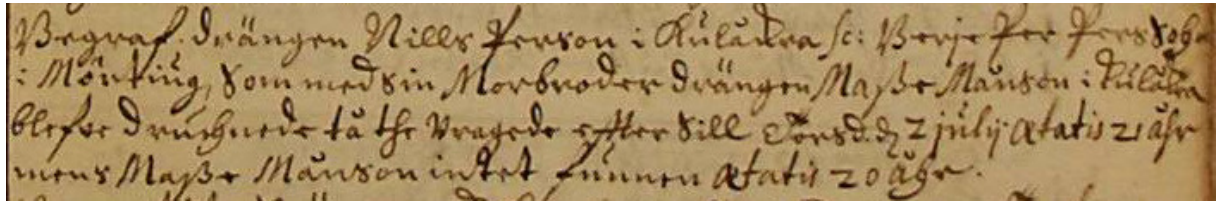 Begraf. drängen Nills Person i Kulåkra sc: Berje Per Perssohn
i Mörtiug, som med sin Morbroder drängen Maße Månson i Kulåkra
blefve druchnede tå the vragede effter sill Torsd. d. 2 julij ætatis 21 åhr
mens Maße Månson intet funnen ætatis 20 åhr.